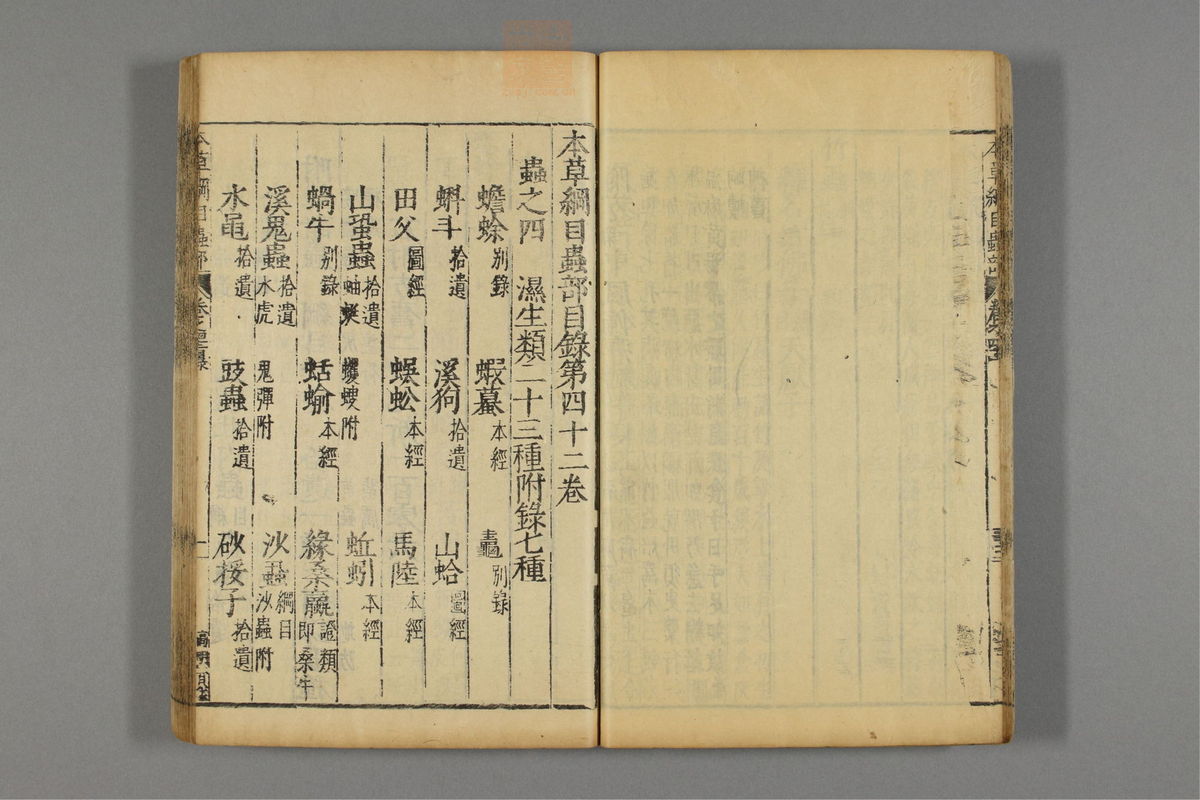 本草綱目蟲部目錄第四十二卷
蟲之四 濕生類二十三種附錄七種
蟾蜍別錄 蝦蟇本經 鼃別錄
蝌斗拾遺 溪狗拾遺 山蛤圖經
田父圖經 蜈蚣本經 馬陸本經
山蛩蟲拾遺蚰蜒 蠼螋附 蚯蚓本經
蝸牛別錄 蛞蝓本經 緣桑蠃證類即桑牛
溪鬼蟲拾遺水虎 鬼彈附 沙蝨綱目沙蟲附
水黽拾遺 豉蟲拾遺 砂挼子拾遺
本草綱目蟲部